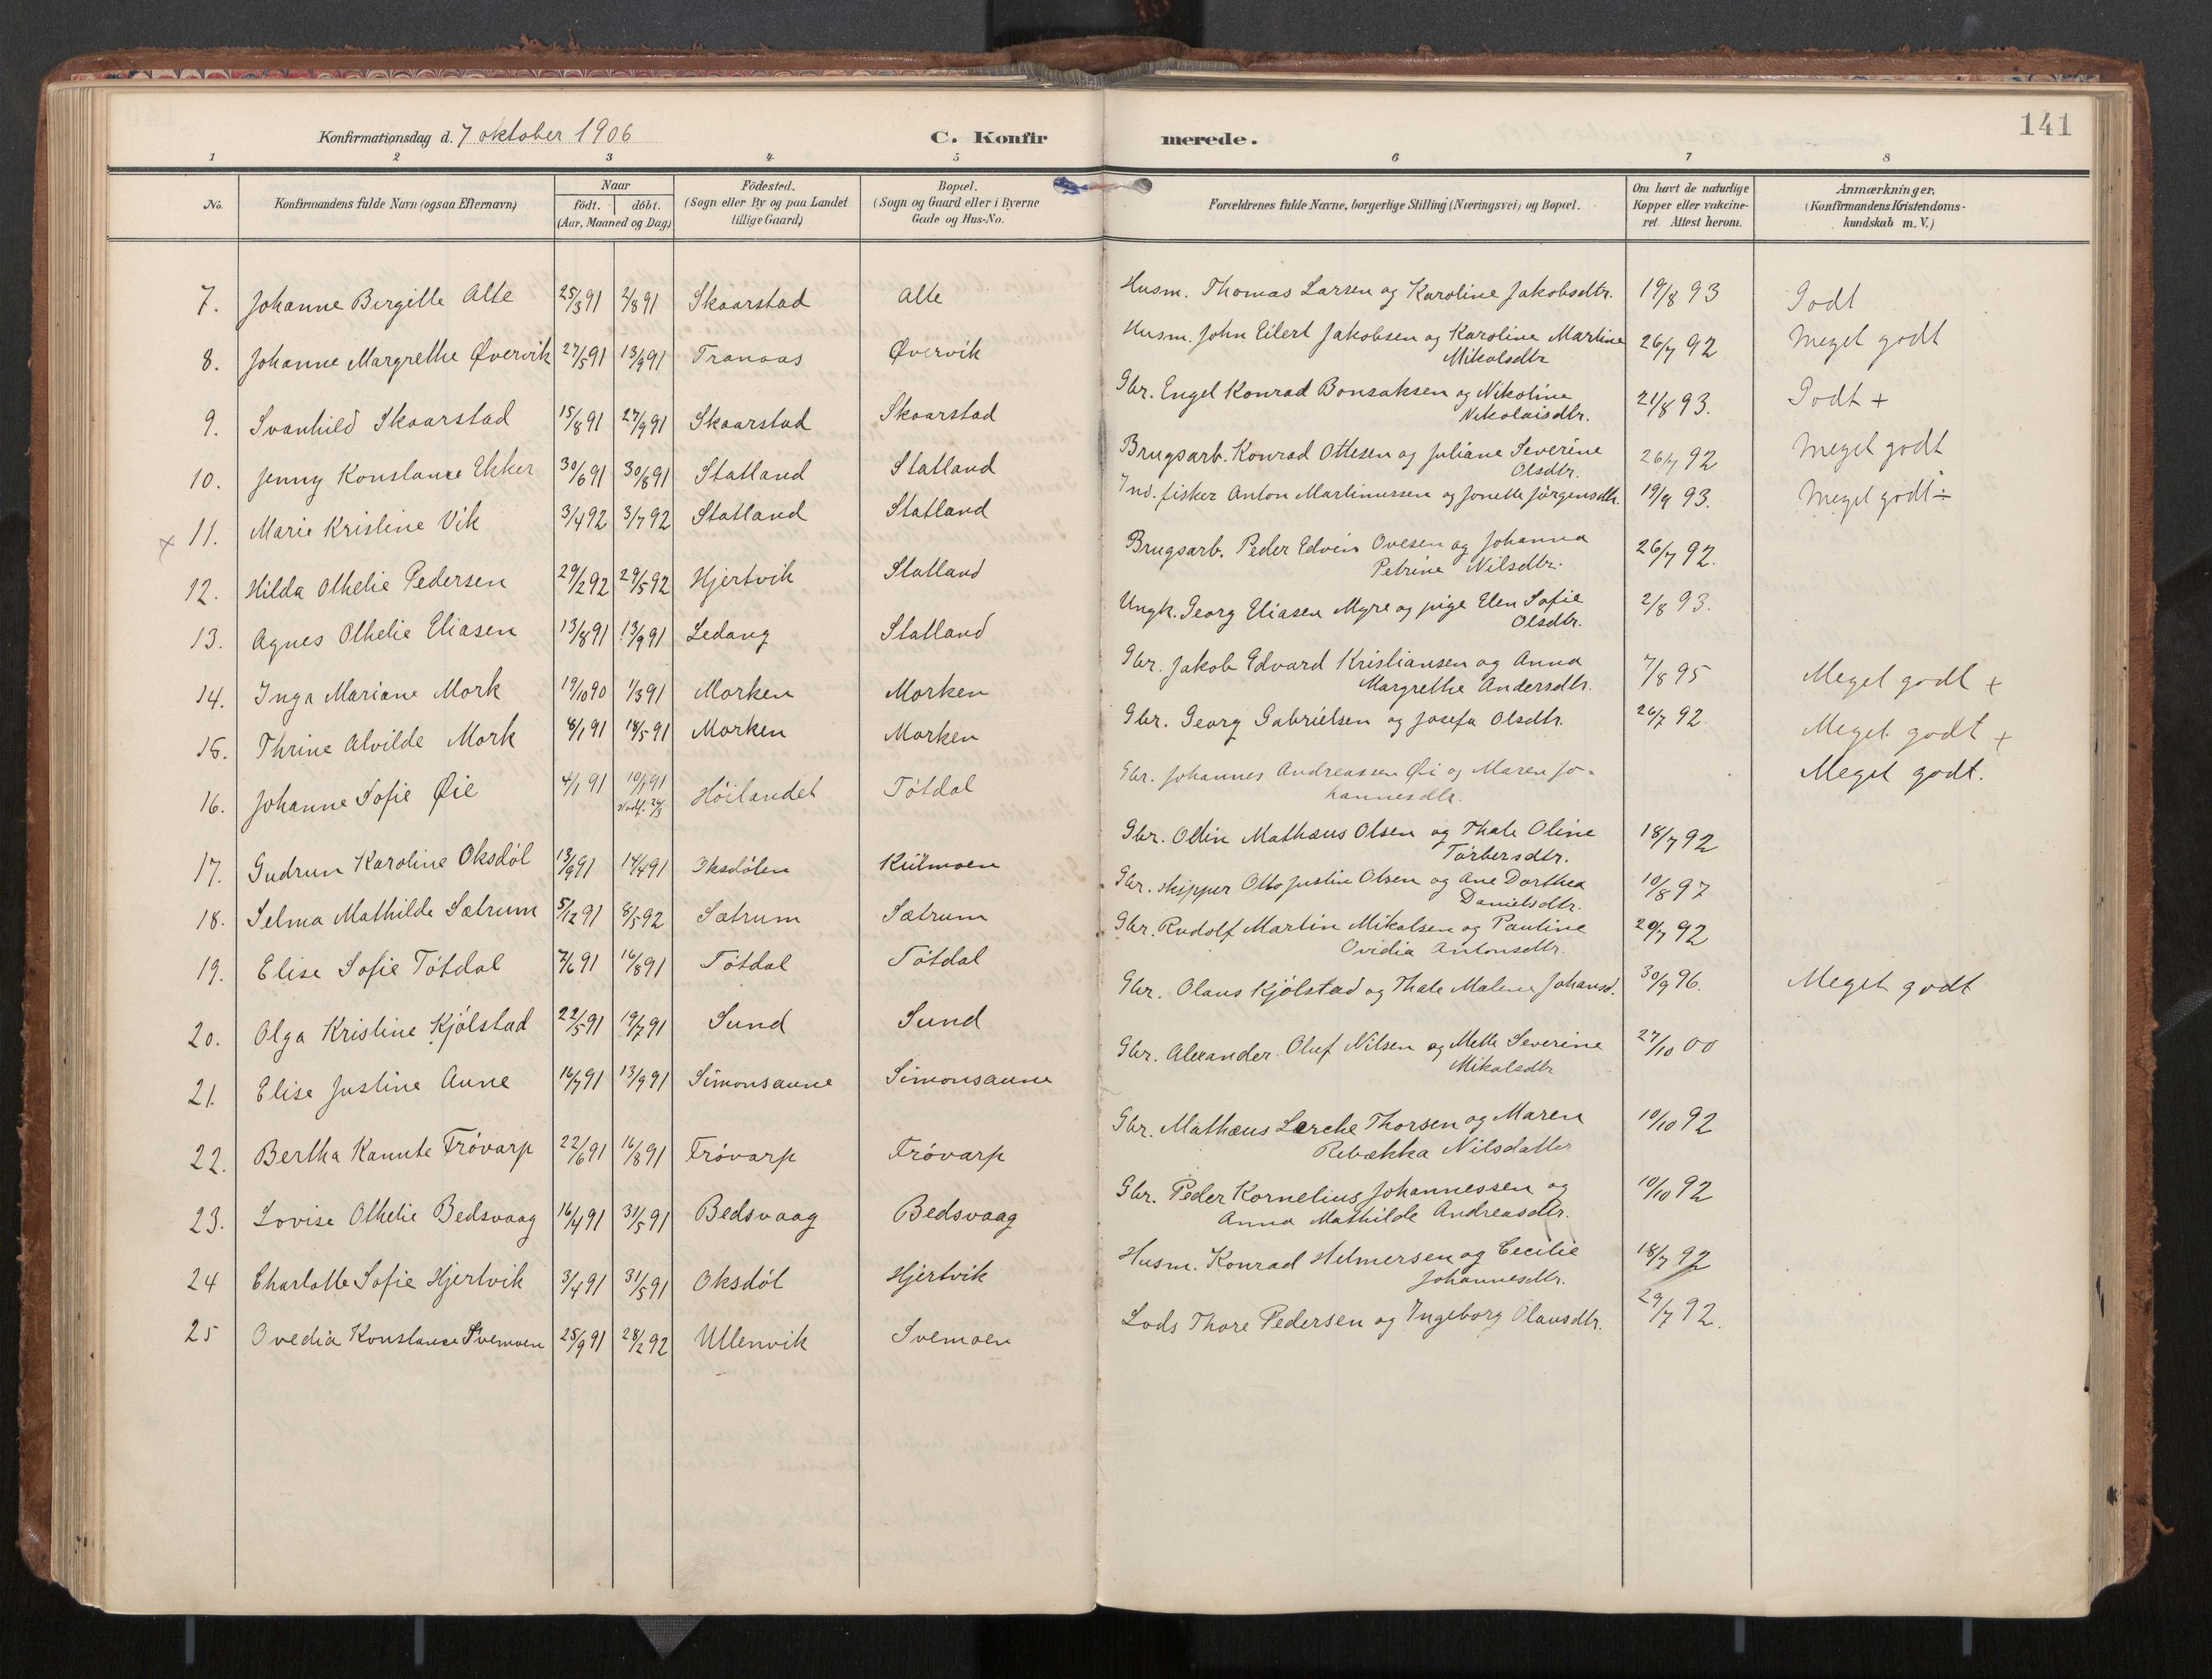 141
Konfirmationsdag d. 7 oktober 1906
C. Konfirmerede.
1 2 3 4 5 6 7 8
No.
Konfirmandens fulde Navn (ogsaa Efternavn)
Naar
födt. | döbt.
(Aar, Maaned og Dag)
Födested.
(Sogn eller By og paa Landet
tillige Gaard)
Bopæl.
(Sogn og Gaard eller i Byerne
Gade og Hus-No.
Forældrenes fulde Navne, borgerlige Stilling (Næringsvei) og Bopæl.
Om havt de naturlige
Kopper eller vakcine-
ret. Attest herom.
Anmærkninger.
(Konfirmandens Kristendoms-
kundskab m. V.)
7. Johanne Bergitte Alte 25/3 91 2/8 91 Skaarstad Alte Husm. Thomas Larsen og Karoline Jakobsdtr. 19/8 93 Godt
8. Johanne Margrethe Øvervik 27/5 91 13/9 91 Tranaas Øvervik Husm. John Eilert Jakobsen og Karoline Martine 26/7 92 Meget godt
Mikalsdtr
9. Svanhild Skaarstad 15/8 91 27/9 91 Skaarstad Skaarstad Gbr. Engel Konrad Bonsaksen og Nikoline 21/8 93. Godt +
Nikolaisdtr.
10. Jenny Konstance Ekker 30/6 91 30/8 91 Statland Statland Brugsarb. Konrad Ottesen og Juliane Severine 26/7 92 Meget godt
Olsdtr.
x 11. Marie Kristine Vik 3/4 92 3/7 92 Statland Statland Ind. fisker Anton Martinussen og Jonette Jörgensdtr. 19/9 93. Meget godt ÷
12. Hilda Othelie Pedersen 29/2 92 29/5 92 Hjertvik Statland Brugsarb. Peder Edvin Ovesen og Johanna 26/7 92.
Petrine Nilsdtr.
13. Agnes Othelie Eliasen 13/8 91 13/9 91 Ledang Statland Ungk. Georg Eliasen Myre og pige Elen Sofie 2/8 93.
Olsdtr.
14. Inga Mariane Mork 19/10 90 1/3 91 Morken Morken Gbr. Jakob Edvard Kristiansen og Anna 7/8 95 Meget godt +
Margrethe Andersdtr.
15. Thrine Alvilde Mork 8/1 91 18/5 91 Morken Morken Gbr. Georg Gabrielsen og Josefa Olsdtr. 26/7 92. Meget godt +
16. Johanne Sofie Øie 4/1 91 10/1 91 Höilandet Tötdal Gbr. Johannes Andreassen Øi og Maren Jo- Meget godt.
hannesdtr.
17. Gudrun Karoline Oksdöl 13/9 91 14/4 91 Oksdölen Kiilmoen Gbr. Odin Mathæus Olsen og Thale Oline 18/7 92
Torbersdtr.
18. Selma Mathilde Sætrum 5/12 91 8/5 92 Sætrum Sætrum Gbr. skipper Otto Justin Olsen og Ane Dorthea 10/8 97
Danielsdtr.
19. Elise Sofie Tötdal 7/6 91 16/8 91 Tötdal Tötdal Gbr. Rudolf Martin Mikalsen og Pauline 20/7 92
Ovidia Antonsdtr.
20. Olga Kristine Kjölstad 22/5 91 19/7 91 Sund Sund Gbr. Olaus Kjölstad og Thale Malene Johansd. 30/9 96. Meget godt
21. Elise Justine Aune 16/7 91 13/9 91 Simonsaune Simonsaune Gbr. Alexander Oluf Nilsen og Mette Severine 27/10 00
Mikalsdtr
22. Bertha Kanute Frövarp 22/6 91 16/8 91 Frövarp Frövarp Gbr. Mathæus Lerche Thorsen og Maren 10/10 92
Rebækka Nilsdatter
23. Lovise Othelie Bedsvaag 16/4 91 31/5 91 Bedsvaag Bedsvaag Gbr. Peder Kornelius Johannessen og 10/10 92
Anna Mathilde Andreasdtr.
24 Charlotte Sofie Hjertvik 3/4 91 31/5 91 Oksdöl Hjertvik Husm. Konrad Hilmersen og Cecilie 18/7 92
Johannesdtr.
25 Ovedia Konstance Svemoen 25/9 91 28/2 92 Ullenvik Svemoen Lods Thore Pedersen og Ingeborg Olausdtr. 29/7 92.